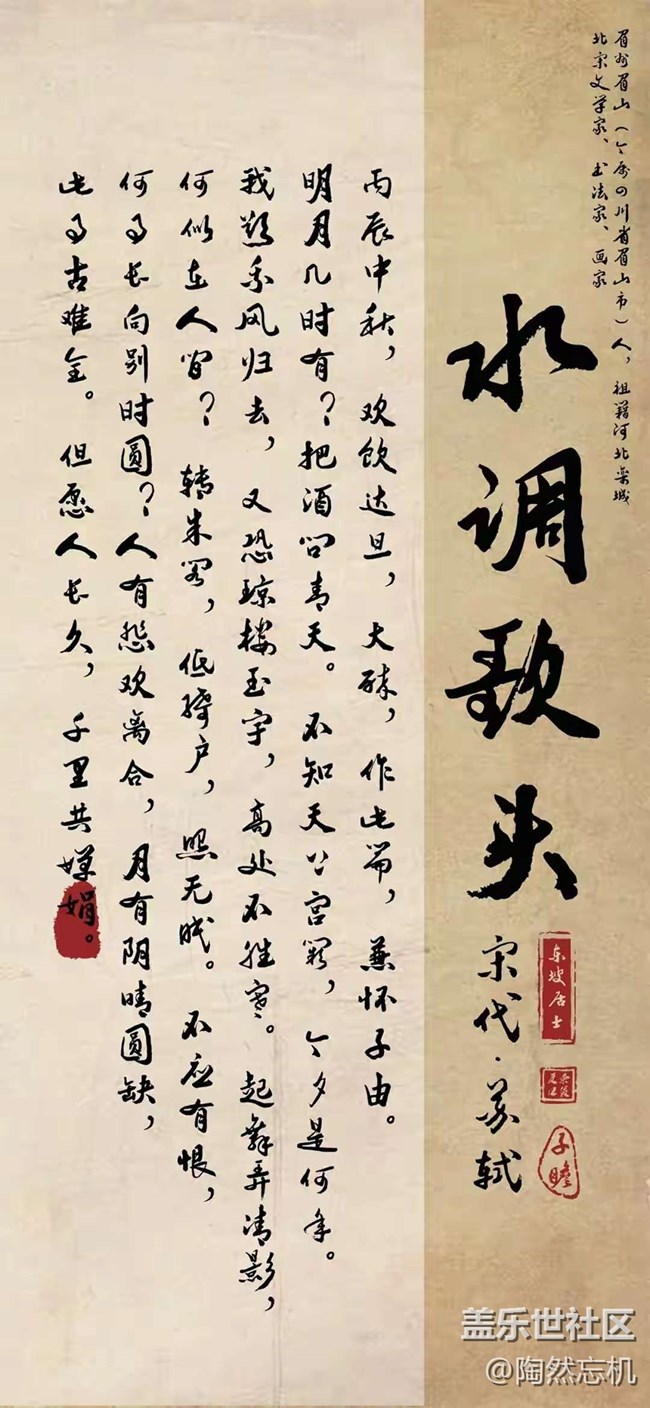 眉州眉山（今属四川省眉山市）人，祖籍河北栾城
北宋文学家、书法家、画家
水调歌头
宋代·苏轼
东坡居士
子瞻
丙辰中秋，欢饮达旦，大醉，作此篇，兼怀子由。
明月几时有？把酒问青天。不知天上宫阙，今夕是何年。
我欲乘风归去，又恐琼楼玉宇，高处不胜寒。起舞弄清影，
何似在人间？转朱阁，低绮户，照无眠。不应有恨，
何事长向别时圆？人有悲欢离合，月有阴晴圆缺，
此事古难全。但愿人长久，千里共婵娟。
盖乐世社区
@陶然忘机